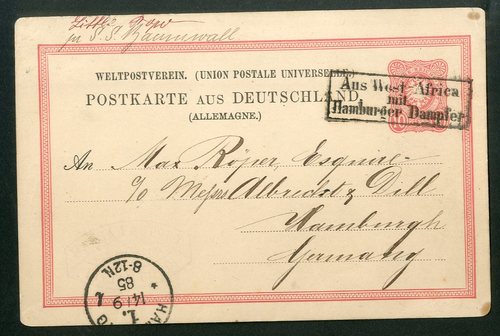 Little Popo
per S.S. Baumwall
WELTPOSTVEREIN. (UNION POSTALE UNIVERSELLE.)
POSTKARTE AUS DEUTSCHLAND
(ALLEMAGNE.)
Aus West-Africa
mit
Hamburger Dampfer
An Max Röper, Esquire
c/o Messrs Albrecht & Dill
Hamburgh
Germany
HA
1.
14/9
85
8-12N.